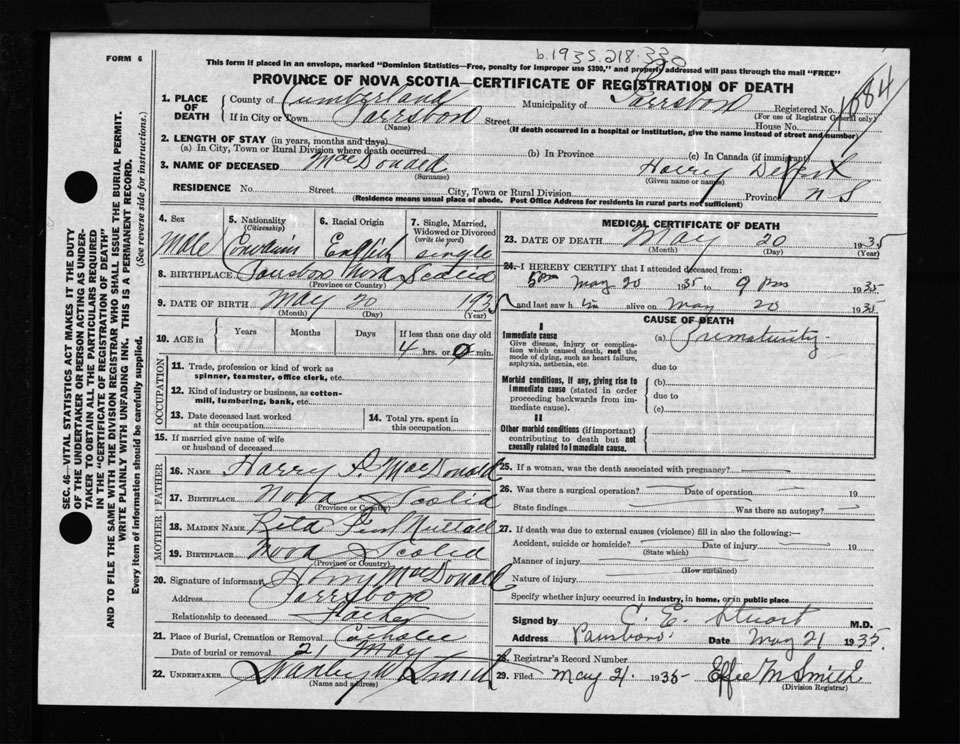 b.1935.218.330
FORM 6
This form if placed in an envelope, marked "Dominion Statistics—Free, penalty for improper use $300," and properly addressed will pass through the mail "FREE"
PROVINCE OF NOVA SCOTIA—CERTIFICATE OF REGISTRATION OF DEATH
1884
1. PLACE OF DEATH
County of Cumberland Municipality of Parrsboro Registered No.
(For use of Registrar General only)
If in City or Town Parrsboro Street House No.
(Name) (If death occurred in a hospital or institution, give the name instead of street and number)
2. LENGTH OF STAY (in years, months and days)
(a) In City, Town or Rural Division where death occurred (b) In Province (c) In Canada (if immigrant)
3. NAME OF DECEASED MacDonald Harry
(Surname) (Given name or names)
RESIDENCE No. Street City, Town or Rural Division Province N S
(Residence means usual place of abode. Post Office Address for residents in rural parts not sufficient)
4. Sex 5. Nationality 6. Racial Origin 7. Single, Married,
(Citizenship) Widowed or Divorced
(write the word)
Male English single
8. BIRTHPLACE Parrsboro Nova Scotia
(Province or Country)
9. DATE OF BIRTH May 20 1935
(Month) (Day) (Year)
10. AGE in Years Months Days If less than one day old
4 hrs. or 0 min.
OCCUPATION
11. Trade, profession or kind of work as
spinner, teamster, office clerk, etc.
12. Kind of industry or business, as cotton-
mill, lumbering, bank, etc.
13. Date deceased last worked
at this occupation
14. Total yrs. spent in
this occupation
15. If married give name of wife
or husband of deceased
FATHER
16. NAME Harry MacDonald
17. BIRTHPLACE Nova Scotia
(Province or Country)
MOTHER
18. MAIDEN NAME Rita
19. BIRTHPLACE Nova Scotia
(Province or Country)
20. Signature of informant Harry MacDonald
Address Parrsboro
Relationship to deceased Father
21. Place of Burial, Cremation or Removal Catholic
Date of burial or removal 21 May
22. UNDERTAKER Stanley Smith
(Name and address)
MEDICAL CERTIFICATE OF DEATH
23. DATE OF DEATH May 20 1935
(Month) (Day) (Year)
24. I HEREBY CERTIFY that I attended deceased from:
5 pm May 20 1935 to 9 pm 1935
and last saw him alive on May 20 1935
CAUSE OF DEATH
I
Immediate cause (a) Prematurity
Give disease, injury or complica-
tion which caused death, not the
mode of dying, such as heart failure,
asphyxia, asthenia, etc. due to
Morbid conditions, if any, giving rise to (b)
immediate cause (stated in order due to
proceeding backwards from im-
mediate cause). (c)
II
Other morbid conditions (if important)
contributing to death but not
causally related to immediate cause.
25. If a woman, was the death associated with pregnancy?
26. Was there a surgical operation? Date of operation 19
State findings Was there an autopsy?
27. If death was due to external causes (violence) fill in also the following:—
Accident, suicide or homicide? Date of injury 19
(State which)
Manner of injury
(How sustained)
Nature of injury
Specify whether injury occurred in industry, in home, or in public place
Signed by C. E. Stuart M.D.
Address Parrsboro Date May 21 1935
28. Registrar's Record Number
29. Filed May 21 1935 Effie M Smith
(Division Registrar)
SEC. 46—VITAL STATISTICS ACT MAKES IT THE DUTY
OF THE UNDERTAKER OR PERSON ACTING AS UNDER-
TAKER TO OBTAIN ALL THE PARTICULARS REQUIRED
IN THE "CERTIFICATE OF REGISTRATION OF DEATH"
AND TO FILE THE SAME WITH THE DIVISION REGISTRAR WHO SHALL ISSUE THE BURIAL PERMIT.
WRITE PLAINLY WITH UNFADING INK. THIS IS A PERMANENT RECORD.
Every item of information should be carefully supplied. (See reverse side for instructions.)